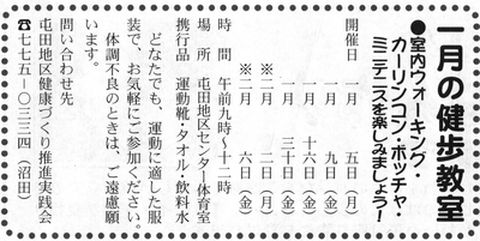 一月の健歩教室
●室内ウォーキング・
カーリンコン・ボッチャ・
ミニテニスを楽しみましょう！
開催日　一月　五日（月）
一月　九日（金）
一月　十六日（金）
一月　三十日（金）
※二月　二日（月）
※二月　六日（金）
時　間　午前九時～十二時
場　所　屯田地区センター体育室
携行品　運動靴・タオル・飲料水
どなたでも、運動に適した服
装で、お気軽にご参加ください。
体調不良のときは、ご遠慮願
います。
問い合わせ先
屯田地区健康づくり推進実践会
☎七七五－〇三三四（沼田）